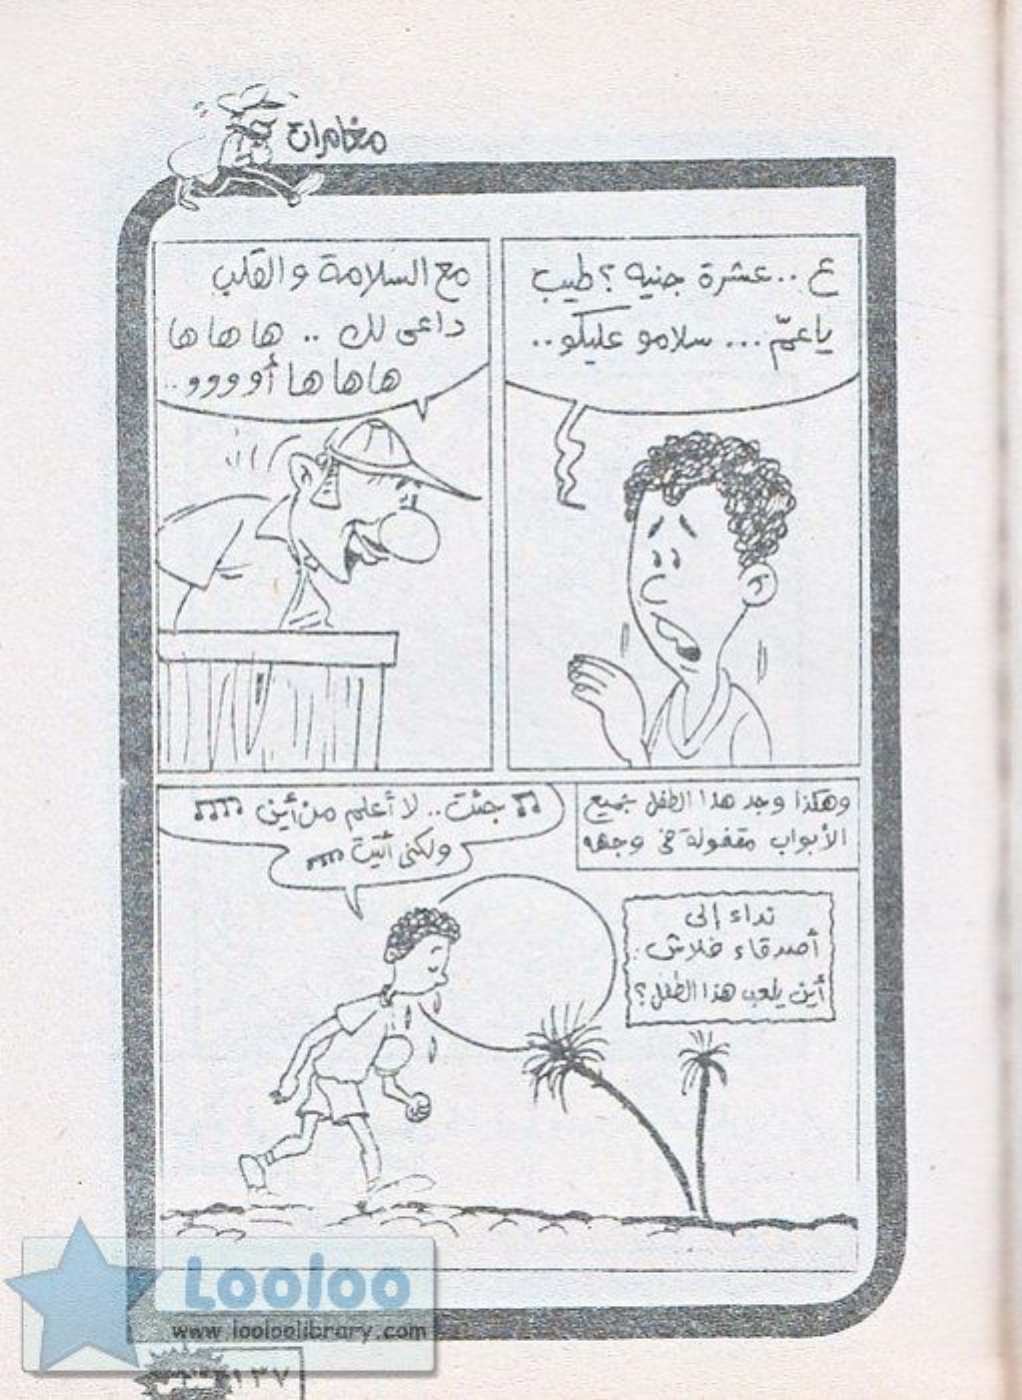 مغامرات
ع .. عشرة جنيه ؟ طيب
ياعمّ ... سلامو عليكو ..
مع السلامة والقلب
داعى لك .. ها ها ها
ها ها ها أوووو ..
وهكذا وجد هذا الطفل جميع
الأبواب مقفولة فى وجهه
جئت .. لا أعلم من أين
ولكنى أتيت
نداء إلى
أصدقاء فلاش :
أين يلعب هذا الطفل ؟
Looloo
www.looloolibrary.com
١٣٧